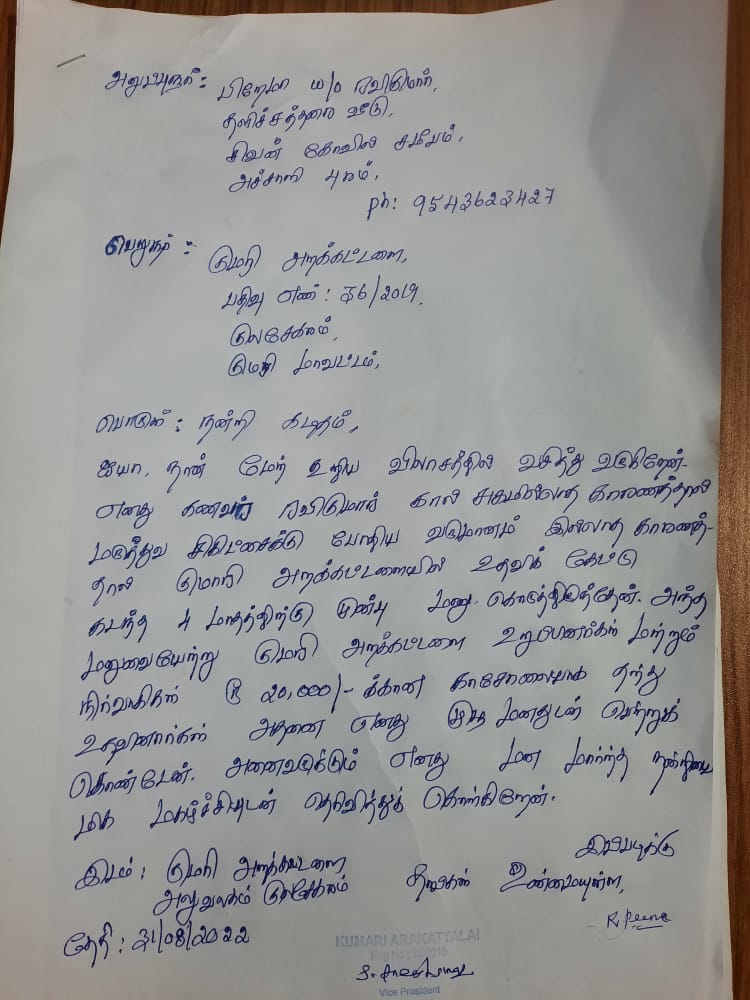 அனுப்புநர் : பிரேமா w/o ரவிகுமார்,
தளிச்சத்தரை வீடு,
சிவன் கோவில் சமீபம்,
அச்சாணி புரம்,
ph: 9543623427
பெறுநர் : குமரி அறக்கட்டளை,
பதிவு எண் : 36/2019.
குலசேகரம்,
குமரி மாவட்டம்,
பொருள் : நன்றி கடிதம்,
ஐயா, நான் மேற் கூறிய விலாசத்தில் வசித்து வருகிறேன்.
எனது கணவர் ரவிகுமார் கால் சுகமில்லாத காரணத்தால்
மருத்துவ சிகிட்சைக்கு போதிய வருமானம் இல்லாத காரணத்-
தால் குமரி அறக்கட்டளையில் உதவிக் கேட்டு
கடந்த 4 மாதத்திற்கு முன்பு மனு கொடுத்திருந்தேன். அந்த
மனுவையேற்று குமரி அறக்கட்டளை உறுபினர்கள் மற்றும்
நிர்வாகிகள் ரூ 20,000/- க்கான காசோலையாக தந்து
உதவினார்கள் அதனை எனது முழு மனதுடன் பெற்றுக்
கொண்டேன். அனைவருக்கும் எனது மன மார்ந்த நன்றியை
மிக மகிழ்ச்சியுடன் தெரிவித்துக் கொள்கிறேன்.
இடம் : குமரி அறக்கட்டளை
அலுவலகம் குலசேகரம்
இப்படிக்கு
தங்கள் உண்மையுள்ள,
தேதி : 31/08/2022
KUMARI ARAKATTALAI
Vice President